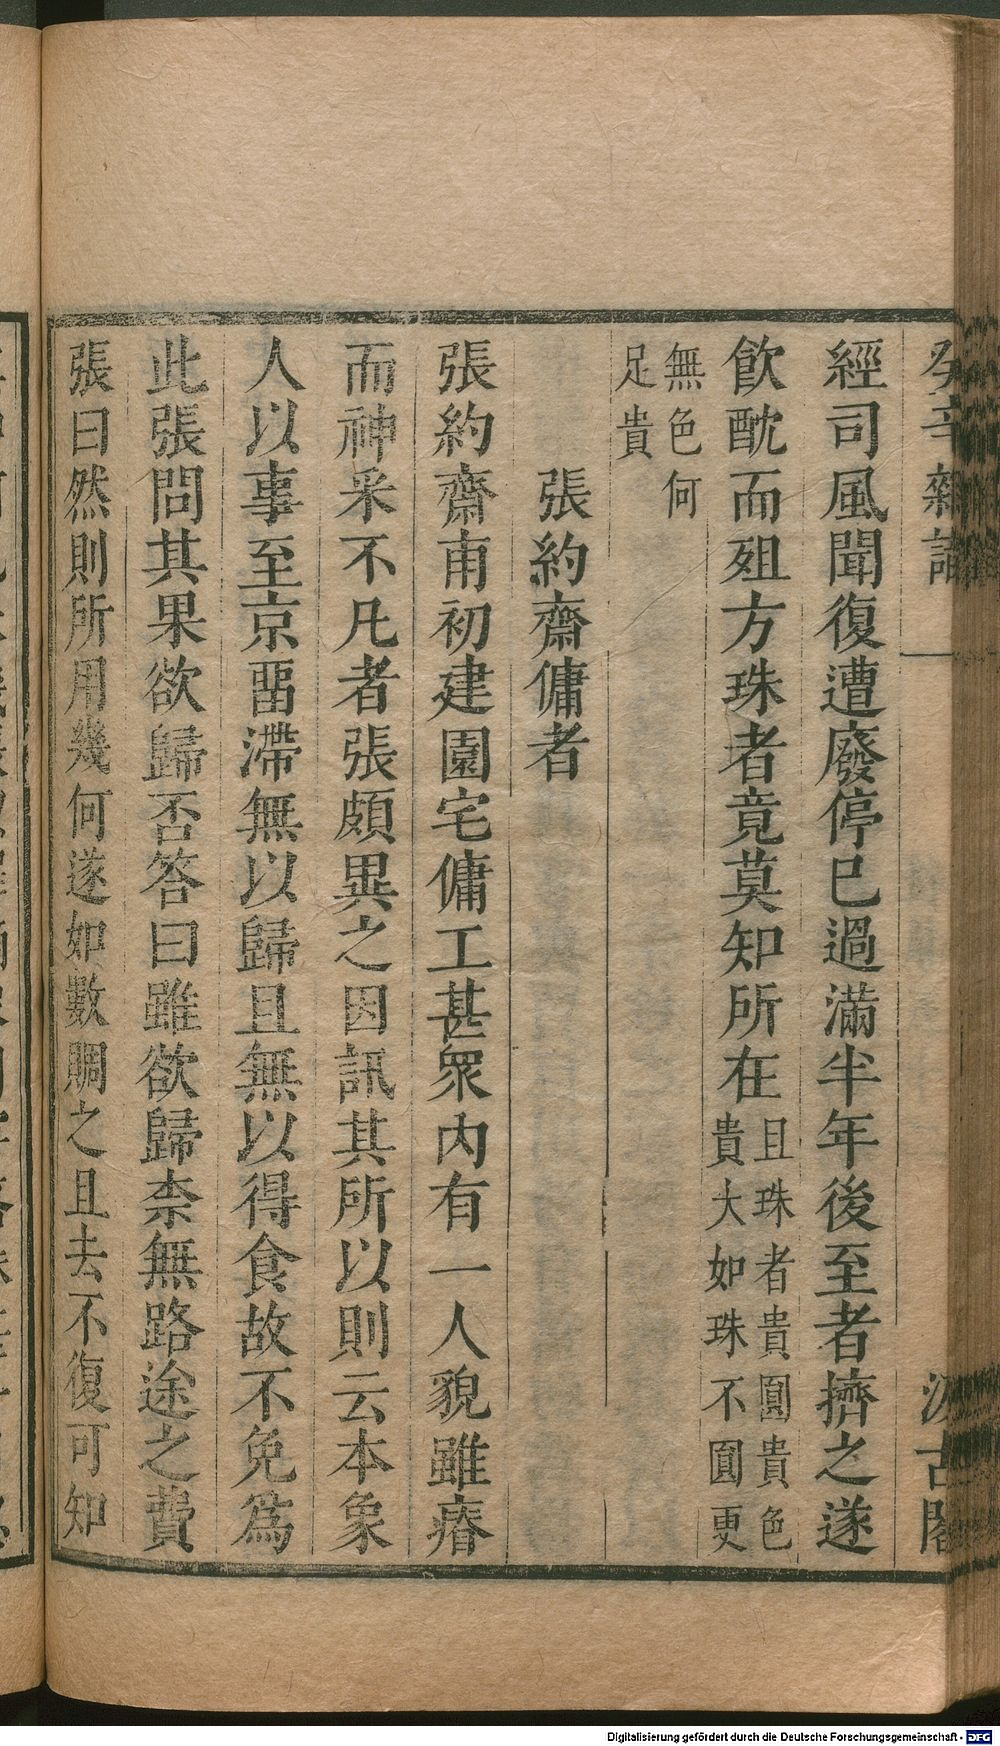 癸辛雜識
汲古閣
經司風聞復遭廢停已過滿半年後至者擠之遂
飲酖而殂方珠者竟莫知所在且珠者貴圓貴色
貴大如珠不圓更
無色何
足貴
張約齋傭者
張約齋甫初建園宅傭工甚衆内有一人貌雖瘠
而神采不凡者張頗異之因訊其所以則云本象
人以事至京畱滯無以歸且無以得食故不免爲
此張問其果欲歸否答曰雖欲歸柰無路途之費
張曰然則所用幾何遂如數賙之且去不復可知
Digitalisierung gefördert durch die Deutsche Forschungsgemeinschaft - DFG